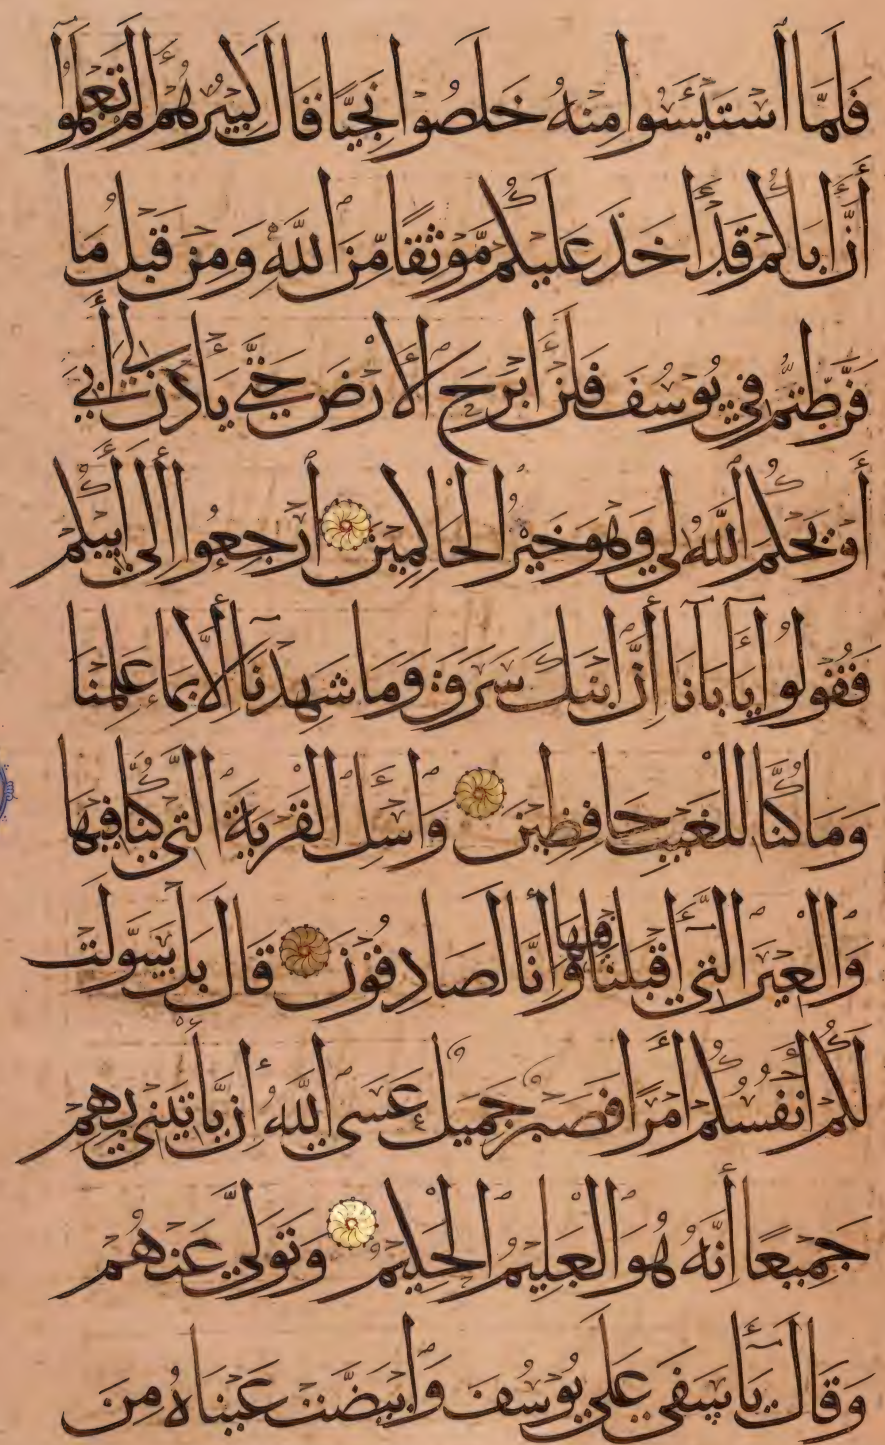 فَلَمَّا اسْتَيْئَسُوا مِنْهُ خَلَصُوا نَجِيًّا قَالَ كَبِيرُهُمْ أَلَمْ تَعْلَمُوا
أَنَّ أَبَاكُمْ قَدْ أَخَذَ عَلَيْكُمْ مَّوْثِقًا مِّنَ اللَّهِ وَمِنْ قَبْلُ مَا
فَرَّطْتُمْ فِي يُوسُفَ فَلَنْ أَبْرَحَ الْأَرْضَ حَتَّى يَأْذَنَ لِي أَبِي
أَوْ يَحْكُمَ اللَّهُ لِي وَهُوَ خَيْرُ الْحَاكِمِينَ ارْجِعُوا إِلَى أَبِيكُمْ
فَقُولُوا يَا أَبَانَا إِنَّ ابْنَكَ سَرَقَ وَمَا شَهِدْنَا إِلَّا بِمَا عَلِمْنَا
وَمَا كُنَّا لِلْغَيْبِ حَافِظِينَ وَاسْئَلِ الْقَرْيَةَ الَّتِي كُنَّا فِيهَا
وَالْعِيرَ الَّتِي أَقْبَلْنَا فِيهَا وَإِنَّا لَصَادِقُونَ قَالَ بَلْ سَوَّلَتْ
لَكُمْ أَنْفُسُكُمْ أَمْرًا فَصَبْرٌ جَمِيلٌ عَسَى اللَّهُ أَنْ يَّأْتِيَنِي بِهِمْ
جَمِيعًا إِنَّهُ هُوَ الْعَلِيمُ الْحَكِيمُ وَتَوَلَّى عَنْهُمْ
وَقَالَ يَا أَسَفَى عَلَى يُوسُفَ وَابْيَضَّتْ عَيْنَاهُ مِنَ